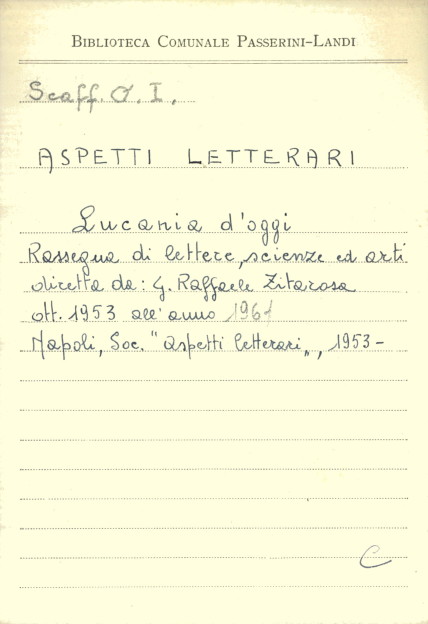 BIBLIOTECA COMUNALE PASSERINI-LANDI
Scaff. O. I.
ASPETTI LETTERARI
Lucania d'oggi
Rassegna di lettere, scienze ed arti
diretta da: G. Raffaele Zitarosa
ott. 1953 all'anno 1961
Napoli, Soc. "Aspetti letterari", 1953-
C